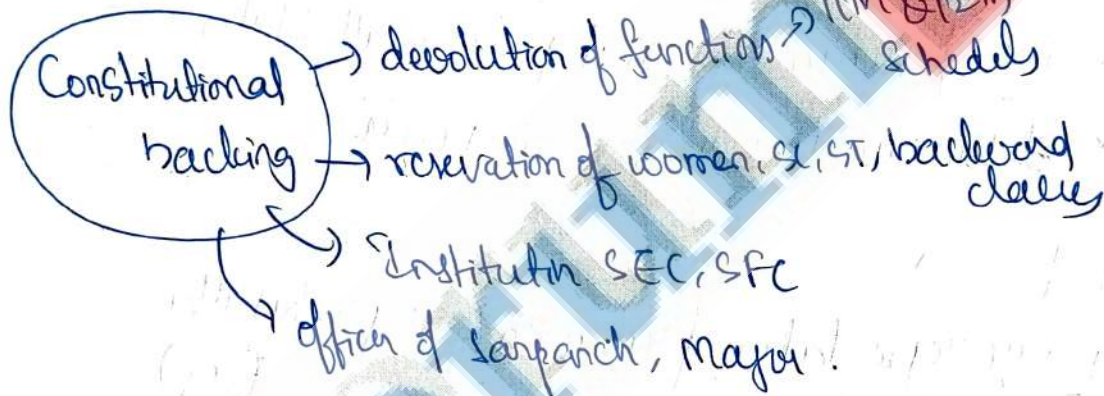 Constitutional
backing
→ devolution of functions → 11th & 12th
Schedels
→ reservation of women, SC, ST, backward
classes
→ Institutin SEC, SFC
→ offices of Sarpanch, Mayor.